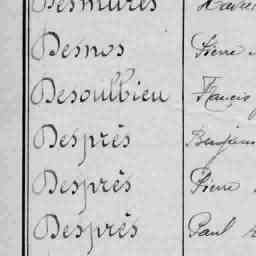 Desmures
Desnos Pierre
Desoulbieu François
Desprès Benjamin
Desprès Pierre
Desprès Paul